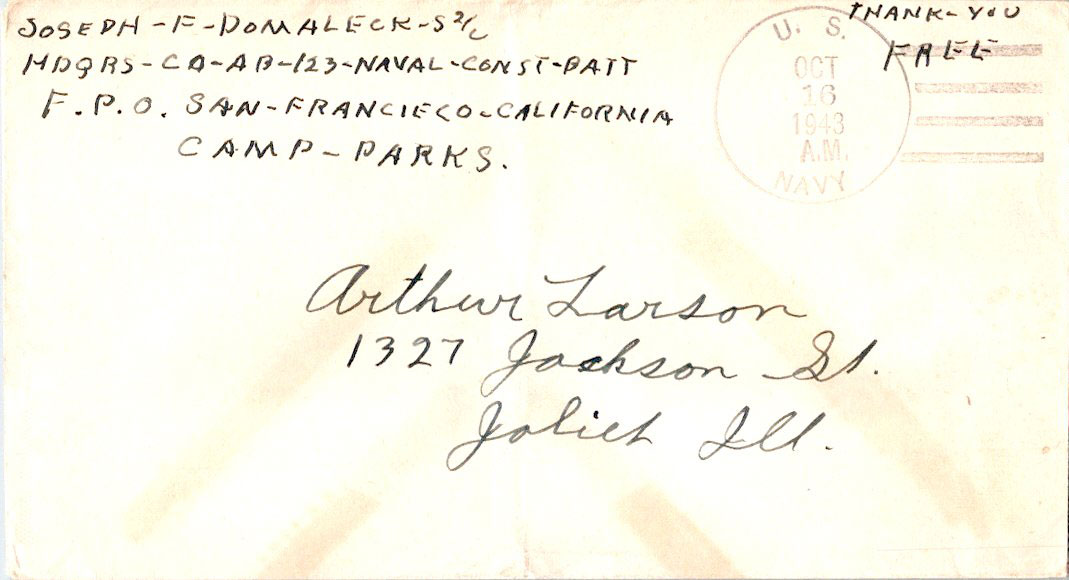 JOSEPH-F-DOMALECK-S2/C
HDQRS-CO-AB-123-NAVAL-CONST-BATT
F.P.O. SAN-FRANCISCO-CALIFORNIA
CAMP-PARKS.
THANK-YOU
FREE
U. S.
OCT
16
1943
A.M.
NAVY
Arthur Larson
1327 Jackson St.
Joliet Ill.